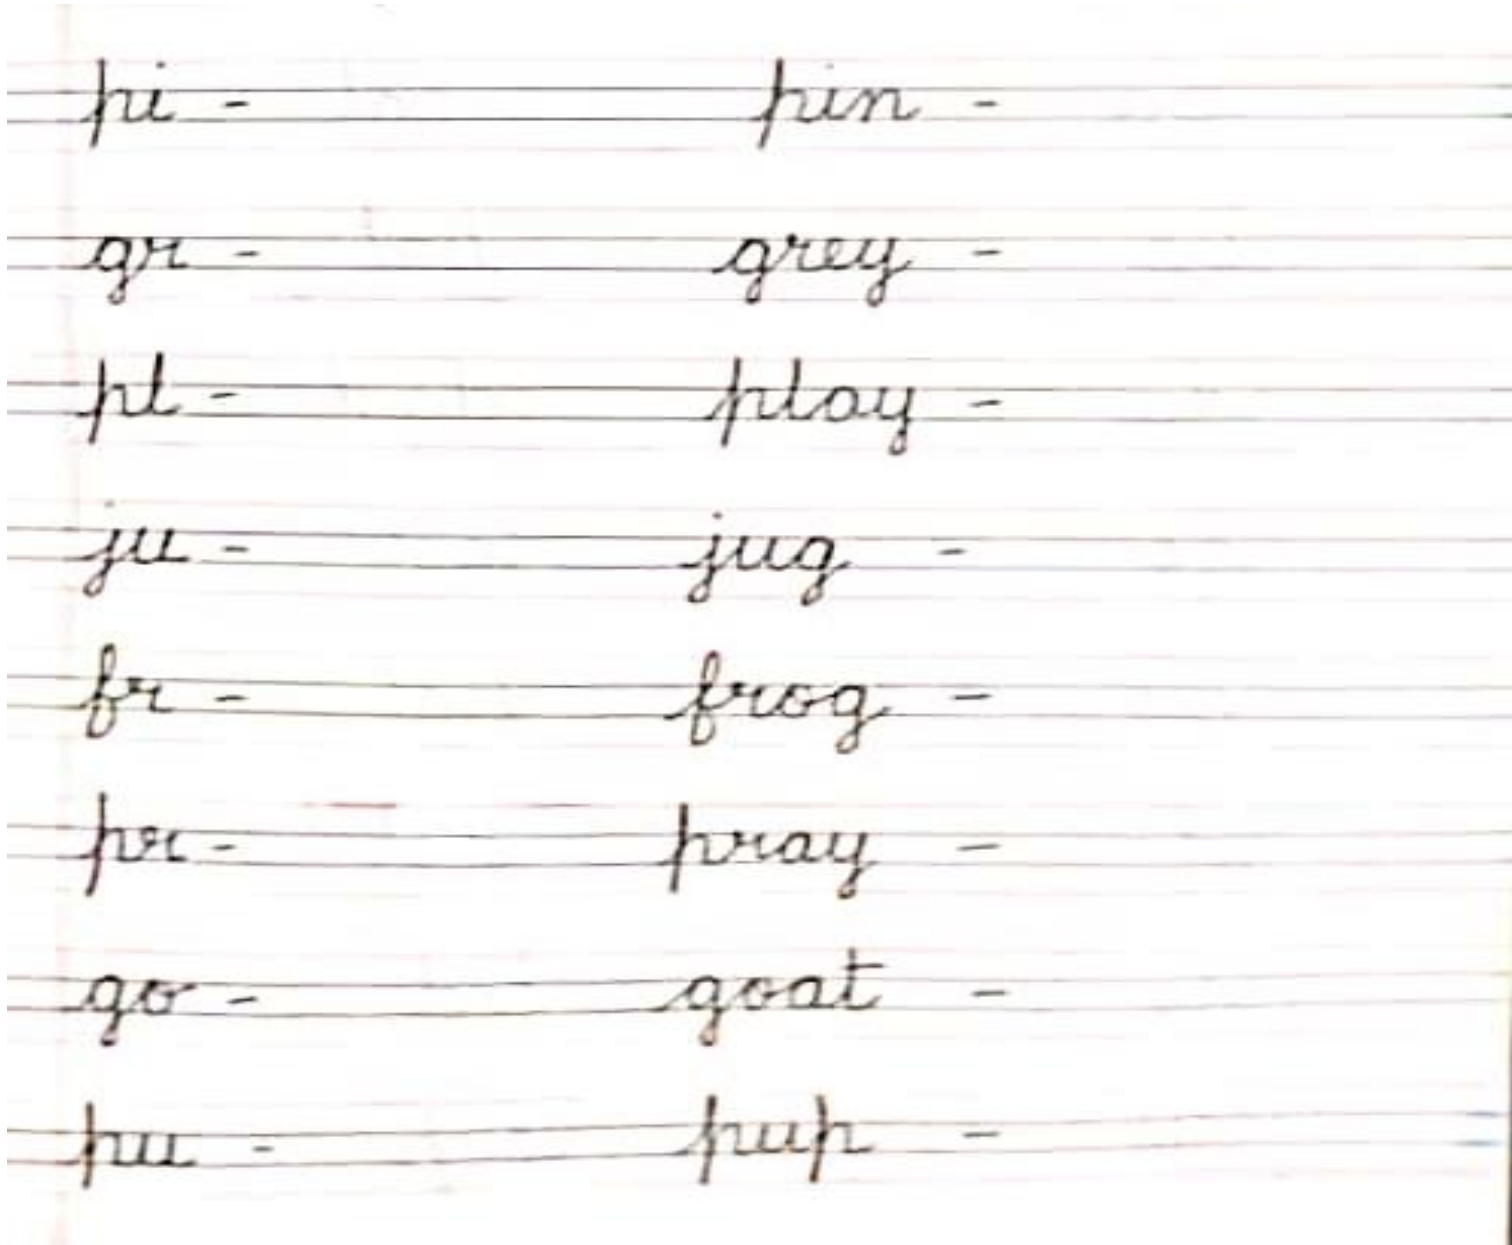 pi - pin -
gr - grey -
pl - play -
ju - jug -
fr - frog -
pr - pray -
go - goat -
pu - pup -